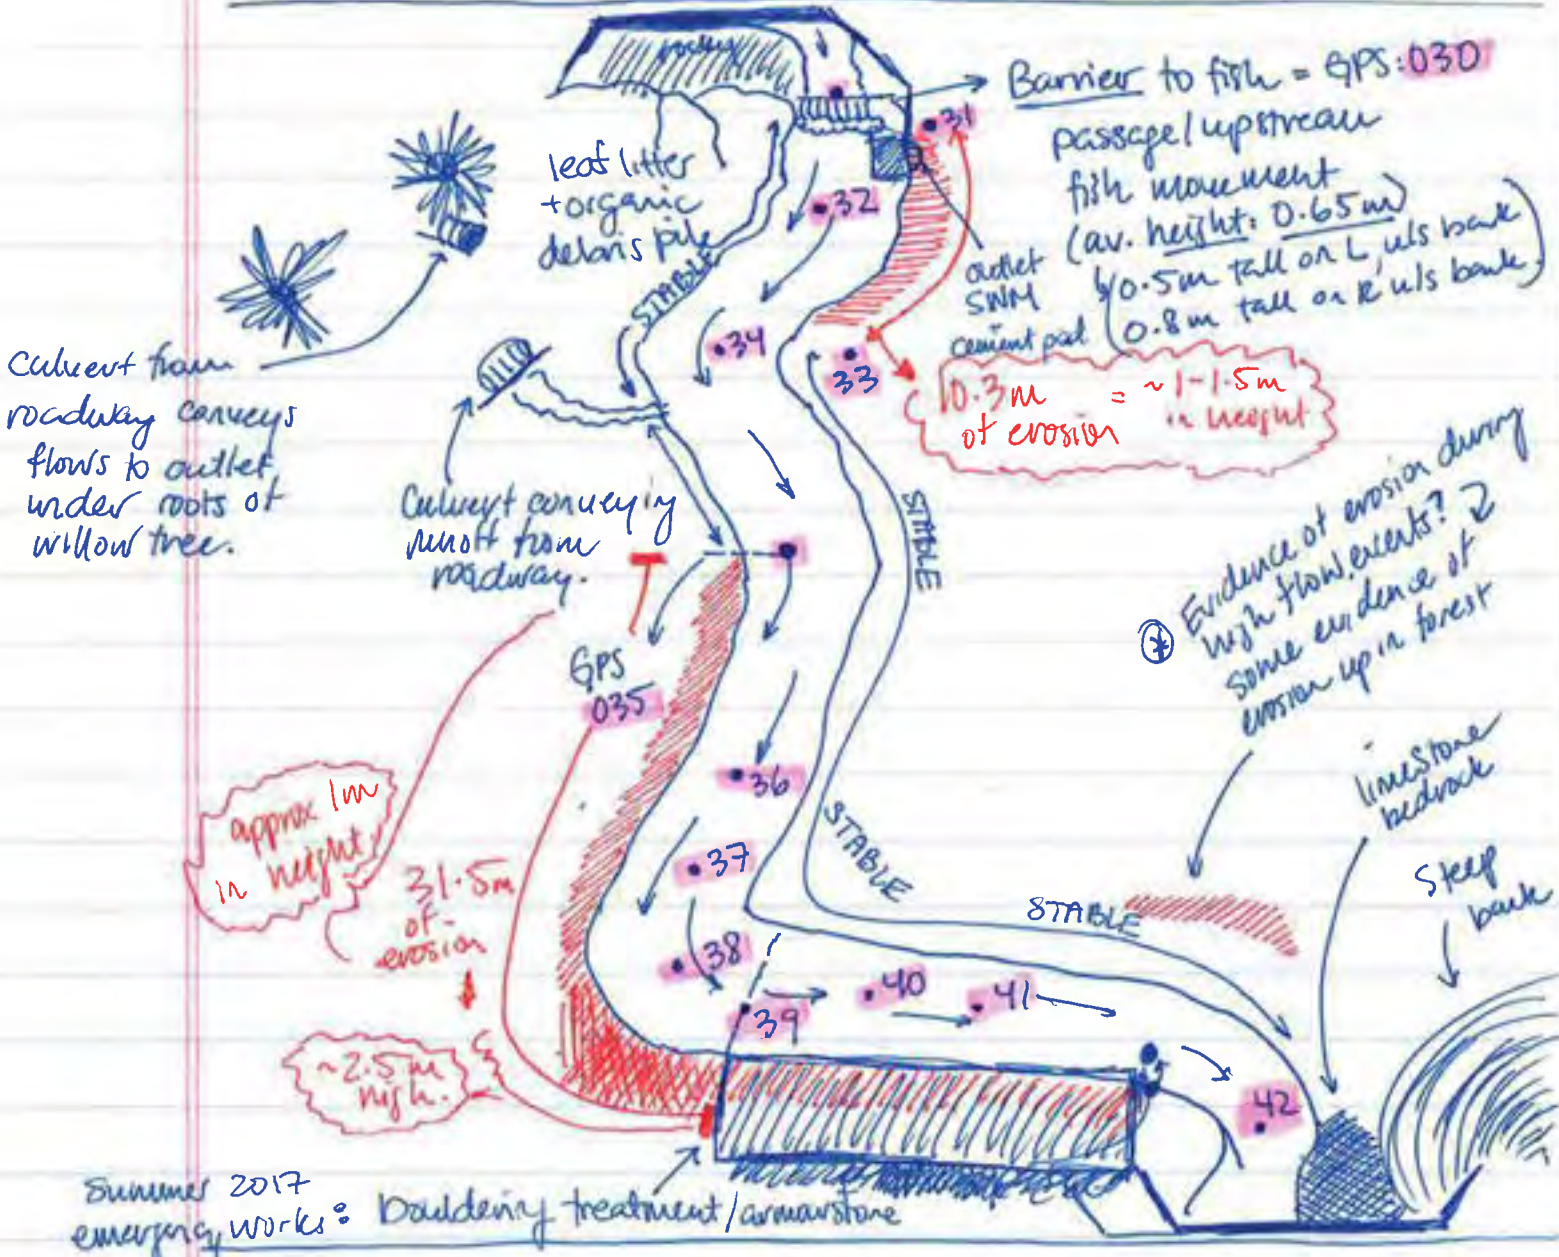 rocky
Barrier to fish = GPS:030
passage/upstream
fish movement
(av. height: 0.65m)
0.5m tall on L u/s bank
0.8m tall on R u/s bank
31
32
leaf litter
+organic
debris pile
STABLE
outlet
SWM
cement pad
34
33
10.3m
of erosion
= ~1-1.5m
in height
Culvert from
roadway conveys
flows to outlet
under roots of
willow tree.
Culvert conveying
runoff from
roadway.
STABLE
Evidence of erosion during
high flow events?
some evidence of
erosion up in forest
GPS
035
36
limestone
bedrock
approx 1m
in height
37
STABLE
31.5m
of
erosion
STABLE
Steep
bank
38
40
41
39
~2.5m
high.
42
Summer 2017
emergency works:
bouldering treatment/armourstone